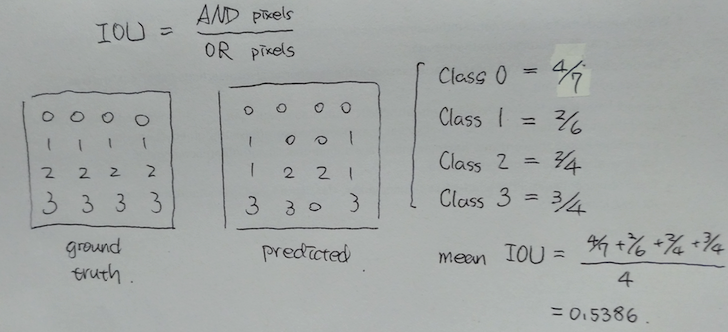 IOU = AND pixels / OR pixels
0 0 0 0
1 1 1 1
2 2 2 2
3 3 3 3
ground truth.
0 0 0 0
1 0 0 1
1 2 2 1
3 3 0 3
predicted.
Class 0 = 4/7
Class 1 = 2/6
Class 2 = 2/4
Class 3 = 3/4
mean IOU = 4/7 + 2/6 + 2/4 + 3/4 / 4
= 0.5386.